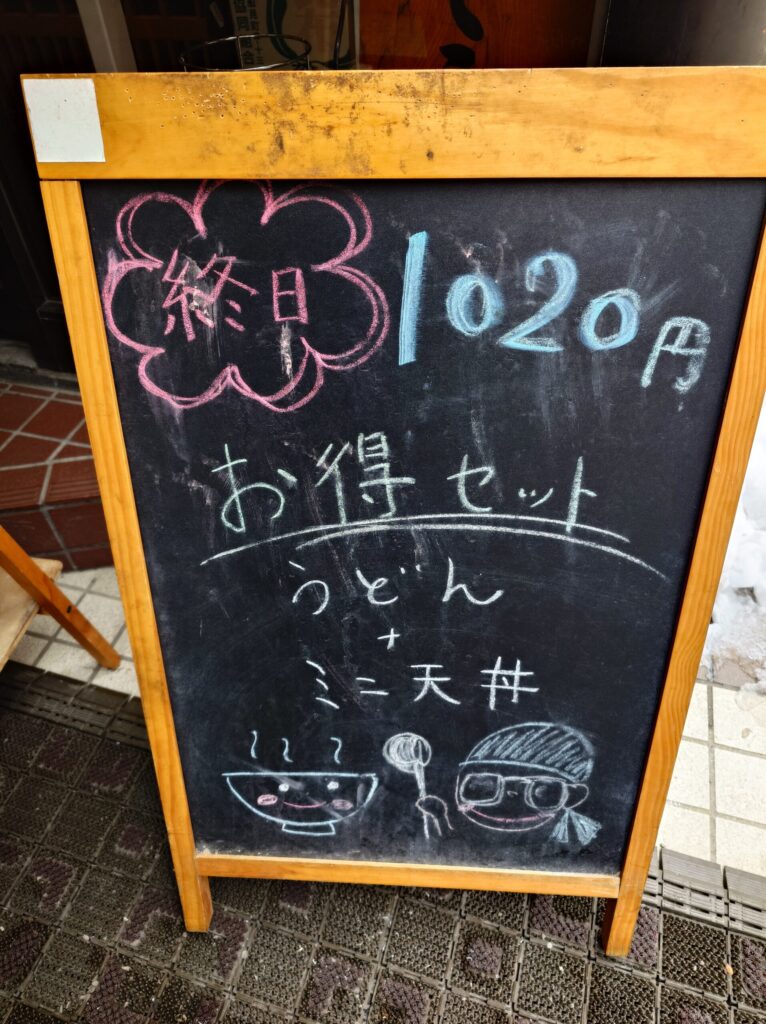 終日 1020円
お得セット
うどん
+
ミニ天丼